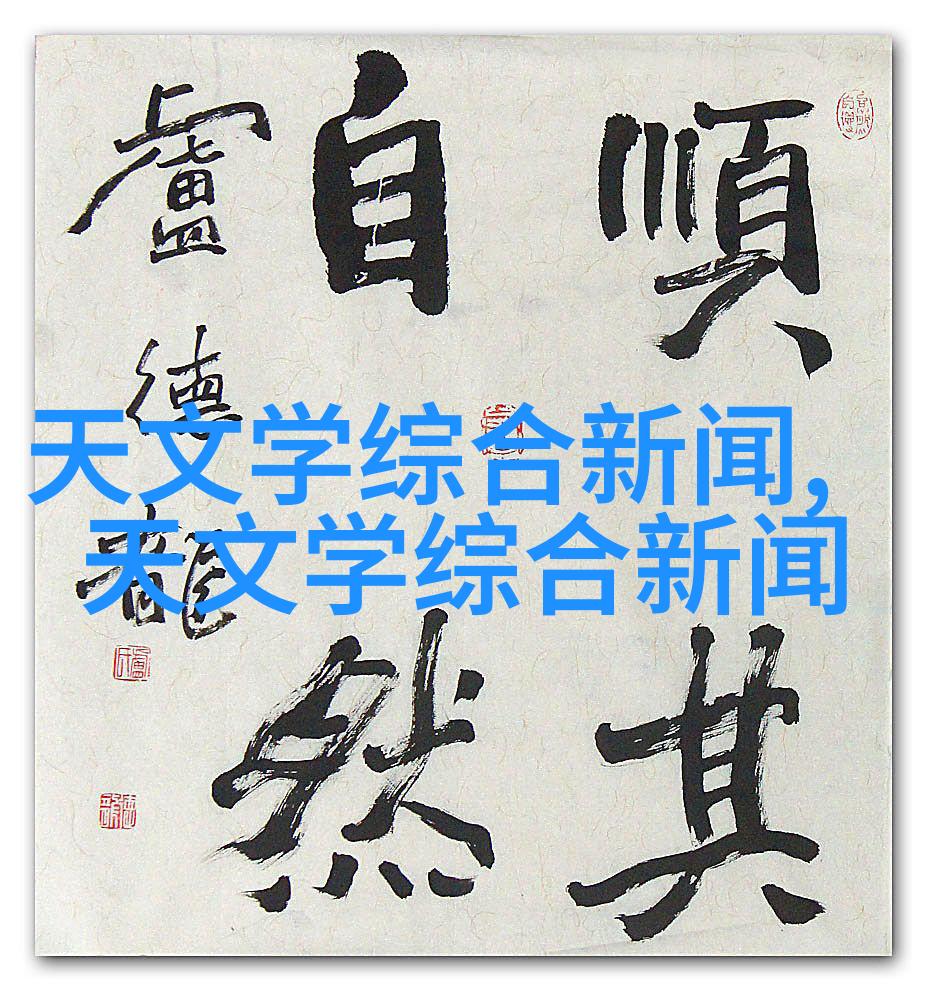 順其
自然
盧德龍
天文学综合新闻,
天文学综合新闻